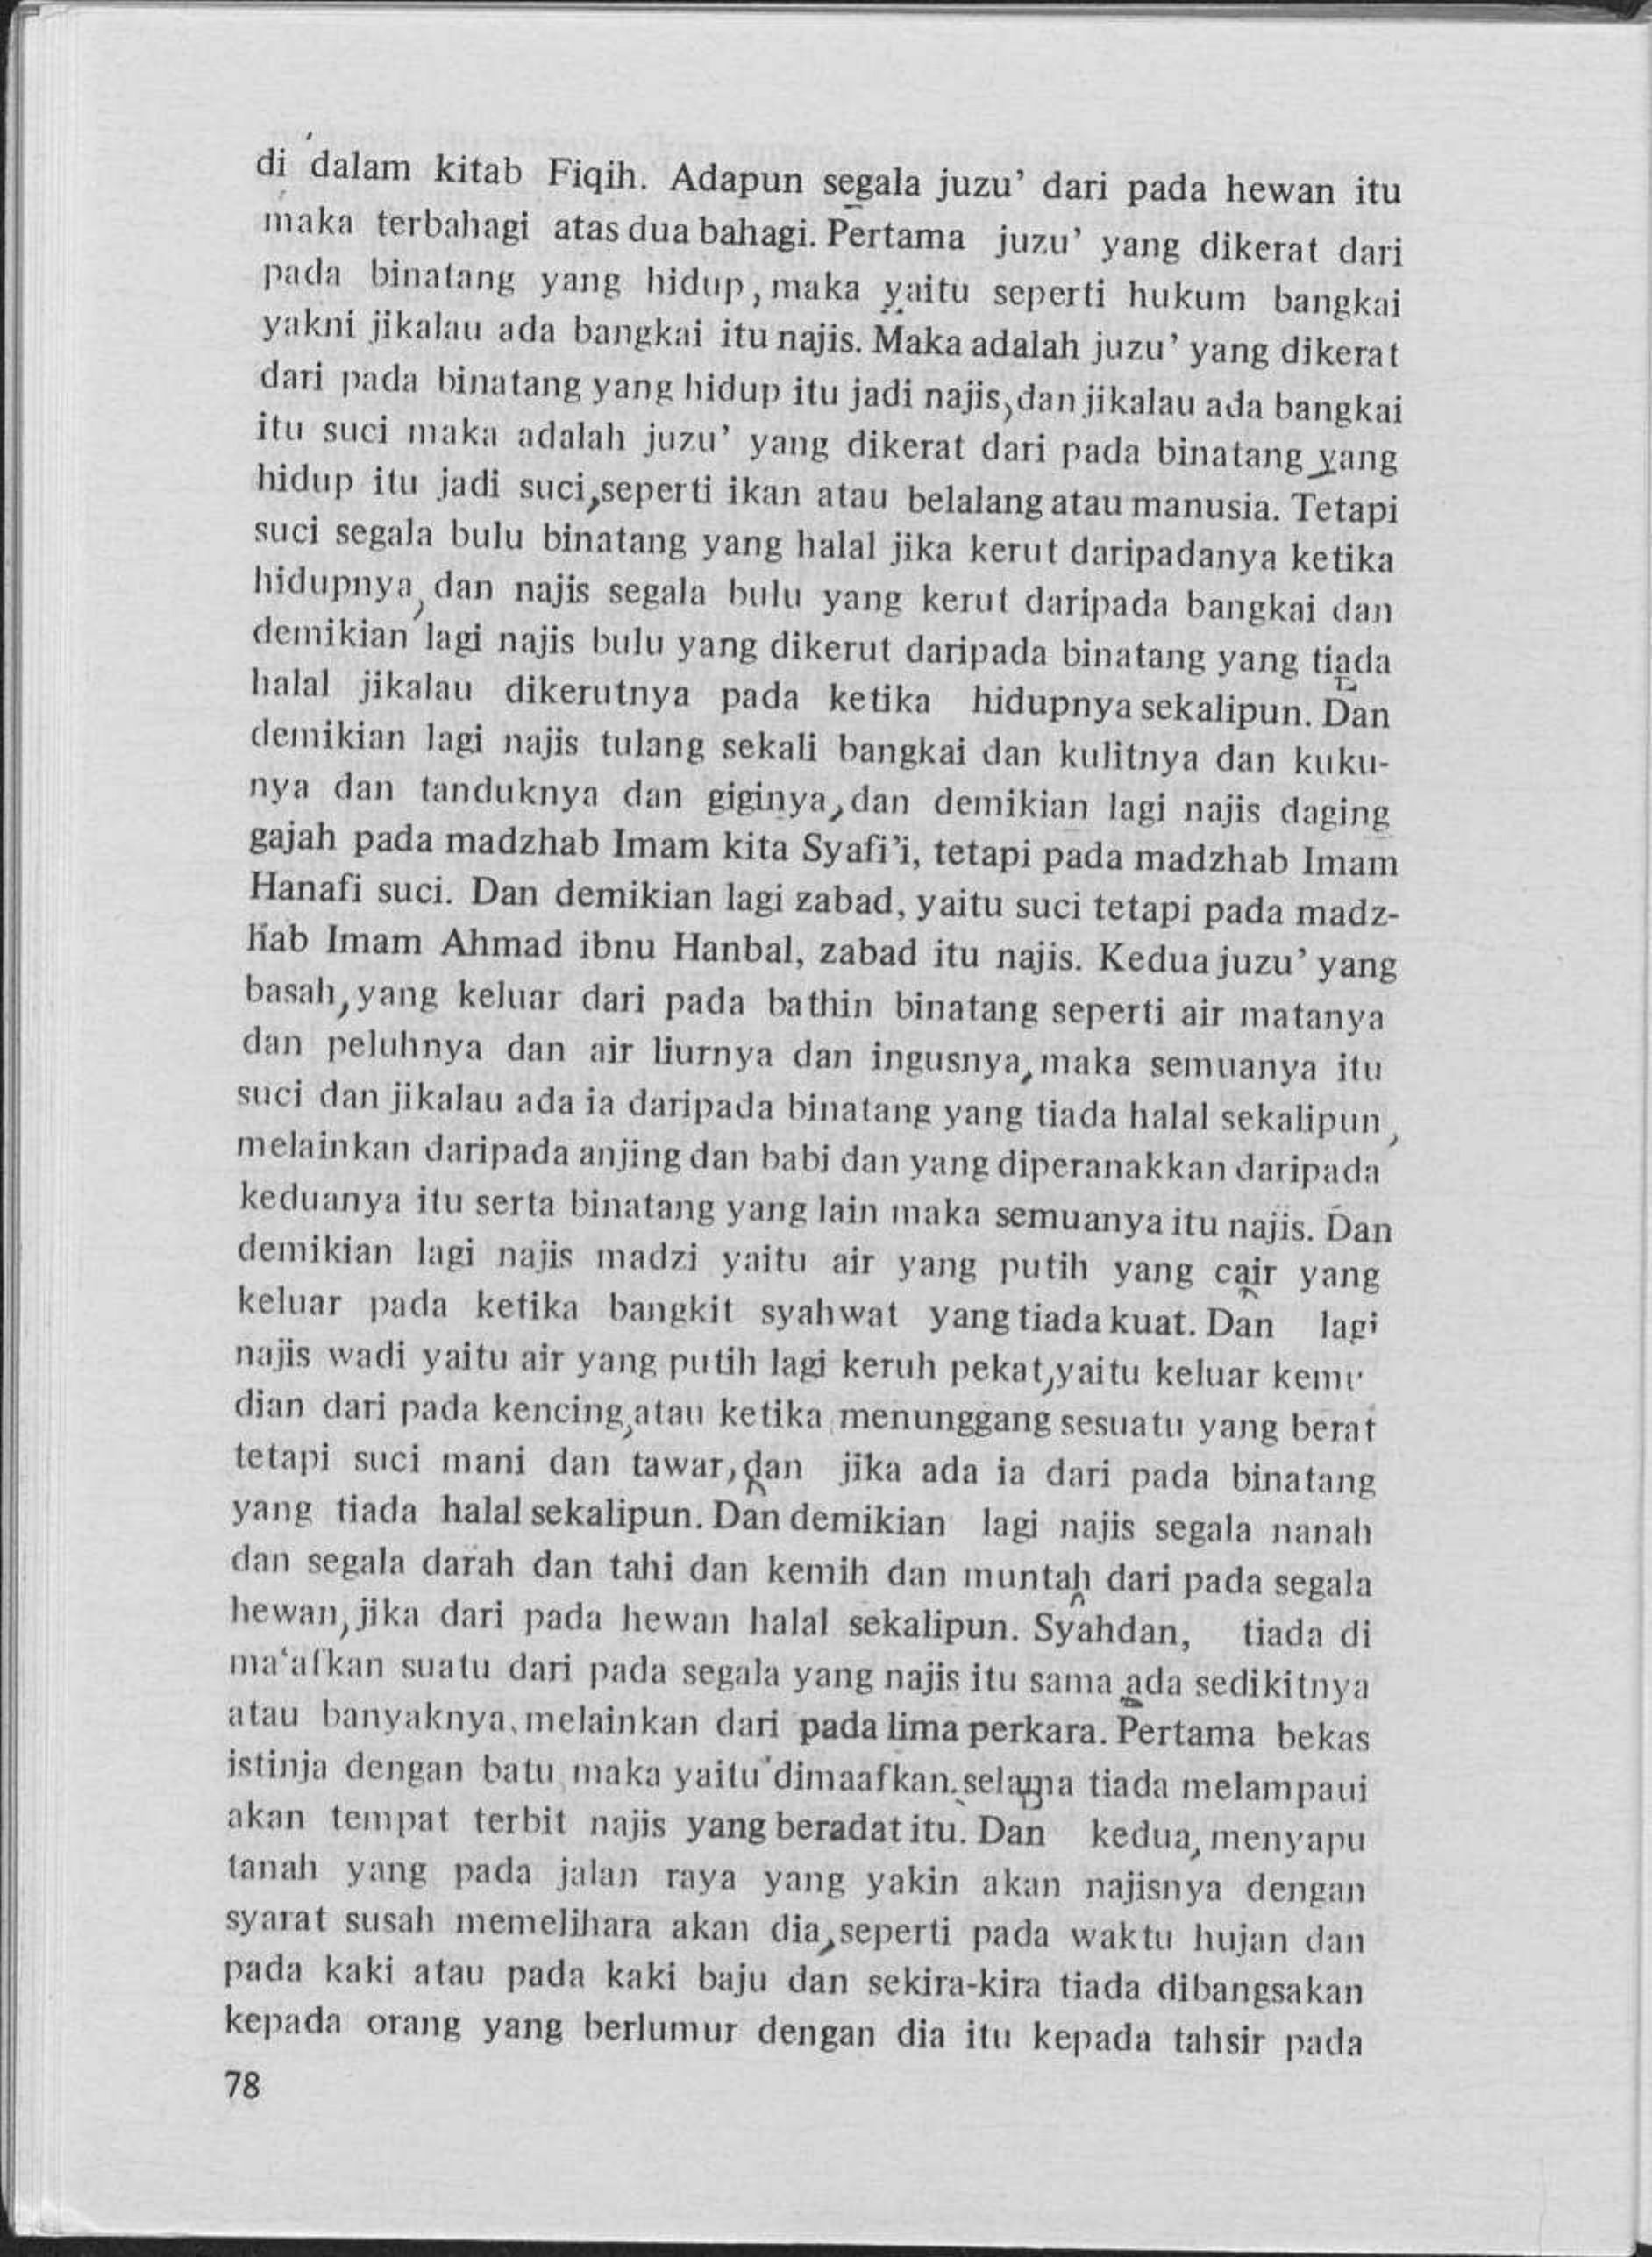 di dalam kitab Fiqih. Adapun segala juzu' dari pada hewan itu
maka terbahagi atas dua bahagi. Pertama juzu' yang dikerat dari
pada binatang yang hidup, maka yaitu seperti hukum bangkai
yakni jikalau ada bangkai itu najis. Maka adalah juzu' yang dikerat
dari pada binatang yang hidup itu jadi najis, dan jikalau ada bangkai
itu suci maka adalah juzu' yang dikerat dari pada binatang yang
hidup itu jadi suci, seperti ikan atau belalang atau manusia. Tetapi
suci segala bulu binatang yang halal jika kerut daripadanya ketika
hidupnya, dan najis segala bulu yang kerut daripada bangkai dan
demikian lagi najis bulu yang dikerut daripada binatang yang tiada
halal jikalau dikerutnya pada ketika hidupnya sekalipun. Dan
demikian lagi najis tulang sekali bangkai dan kulitnya dan kuku-
nya dan tanduknya dan giginya, dan demikian lagi najis daging
gajah pada madzhab Imam kita Syafi'i, tetapi pada madzhab Imam
Hanafi suci. Dan demikian lagi zabad, yaitu suci tetapi pada madz-
hab Imam Ahmad ibnu Hanbal, zabad itu najis. Kedua juzu' yang
basah, yang keluar dari pada bathin binatang seperti air matanya
dan peluhnya dan air liurnya dan ingusnya, maka semuanya itu
suci dan jikalau ada ia daripada binatang yang tiada halal sekalipun,
melainkan daripada anjing dan babi dan yang diperanakkan daripada
keduanya itu serta binatang yang lain maka semuanya itu najis. Dan
demikian lagi najis madzi yaitu air yang putih yang cair yang
keluar pada ketika bangkit syahwat yang tiada kuat. Dan lagi
najis wadi yaitu air yang putih lagi keruh pekat, yaitu keluar kemu
dian dari pada kencing, atau ketika menunggang sesuatu yang berat
tetapi suci mani dan tawar, dan jika ada ia dari pada binatang
yang tiada halal sekalipun. Dan demikian lagi najis segala nanah
dan segala darah dan tahi dan kemih dan muntah dari pada segala
hewan, jika dari pada hewan halal sekalipun. Syahdan, tiada di
ma'afkan suatu dari pada segala yang najis itu sama ada sedikitnya
atau banyaknya, melainkan dari pada lima perkara. Pertama bekas
istinja dengan batu maka yaitu dimaafkan. selama tiada melampaui
akan tempat terbit najis yang beradat itu. Dan kedua, menyapu
tanah yang pada jalan raya yang yakin akan najisnya dengan
syarat susah memelihara akan dia, seperti pada waktu hujan dan
pada kaki atau pada kaki baju dan sekira-kira tiada dibangsakan
kepada orang yang berlumur dengan dia itu kepada tahsir pada
78